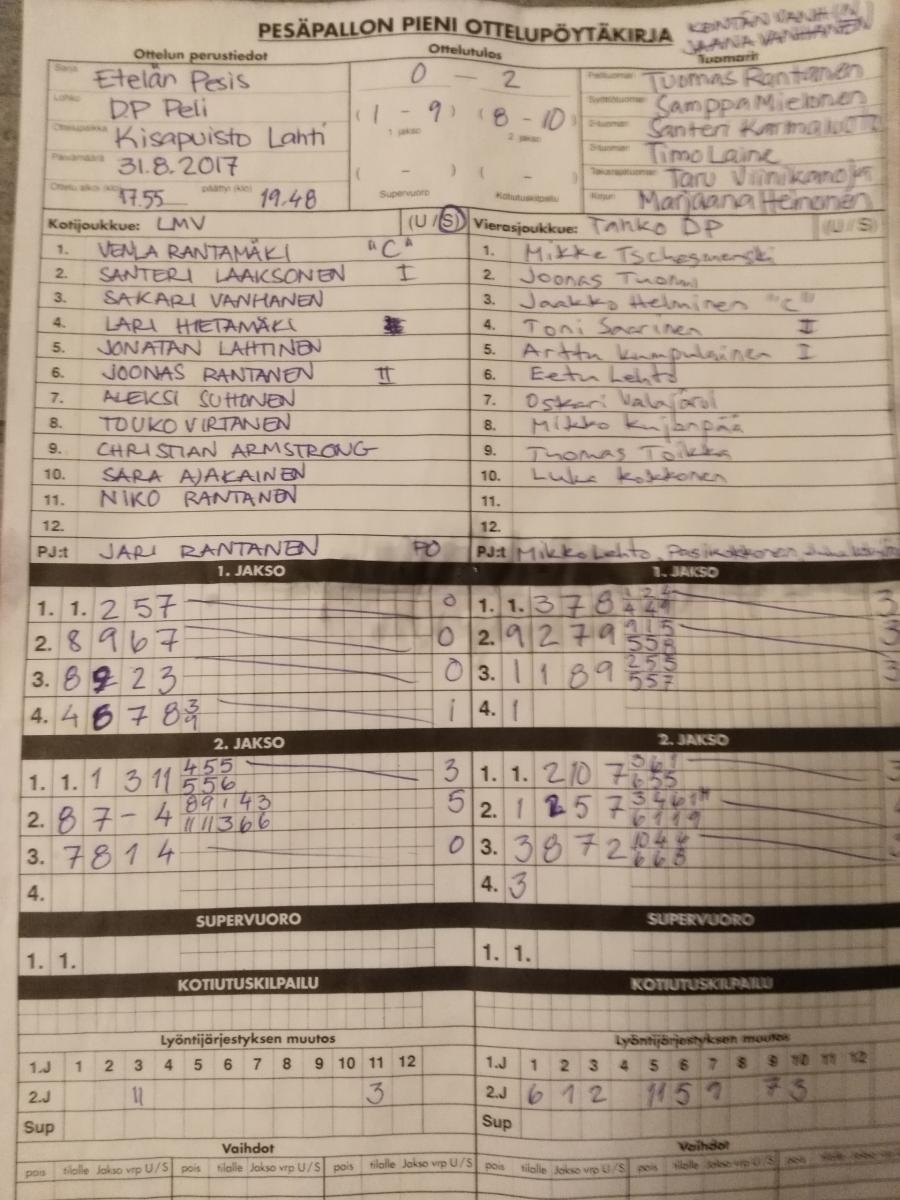 PESÄPALLON PIENI OTTELUPÖYTÄKIRJA
KENTÄN VANH
JAANA VANHANEN
Ottelun perustiedot Ottelutulos Tuomarit
Sarja Etelän Pesis 0 - 2 Pelituomari Tuomas Rantanen
Lohko DP Peli (1 - 9) (8 - 10) Syöttötuomari Samppa Mielonen
1. jakso 2. jakso
Ottelupaikka Kisapuisto Lahti 2-tuomari Santeri
Päivämäärä 31.8.2017 ( - ) ( - ) 3-tuomari Timo Laine
Supervuoro Kotiutuskilpailu Takarajatuomari Taru
Ottelu alkoi (klo) 17.55 päättyi (klo) 19.48 Kirjuri Marjaana Heinonen
Kotijoukkue: LMV (U/S) Vierasjoukkue: Tahko DP (U/S)
1. VENLA RANTAMÄKI "C" 1. Mikke
2. SANTERI LAAKSONEN I 2. Joonas Tuomi
3. SAKARI VANHANEN 3. Jaakko Helminen "C"
4. LARI HIETAMÄKI 4. Toni Saarinen II
5. JONATAN LAHTINEN 5. Arttu Kumpulainen I
6. JOONAS RANTANEN II 6. Eetu Lehto
7. ALEKSI SUTIONEN 7. Oskari
8. TOUKO VIRTANEN 8. Mikko Kujanpää
9. CHRISTIAN ARMSTRONG 9. Thomas Toikka
10. SARA AJAKAINEN 10. Luka Kokkonen
11. NIKO RANTANEN 11.
12. 12.
PJ:t JARI RANTANEN PO PJ:t Mikko Lehto, Pasi Kokkonen,
1. JAKSO 1. JAKSO
1. 1. 2 5 7 0 1. 1. 3 7 8 3
2. 8 9 6 7 0 2. 9 2 7 9 915 558 3
3. 8 2 2 3 0 3. 1 1 8 9 255 557 3
4. 4 6 7 8 3 9 1 4. 1
2. JAKSO 2. JAKSO
1. 1. 1 3 11 455 556 3 1. 1. 2 10 7 361 655
2. 8 7 - 4 89143 11 11 366 5 2. 1 2 5 7 3461 6119
3. 7 8 1 4 0 3. 3 8 7 2 10 4 6 668
4. 4. 3
SUPERVUORO SUPERVUORO
1. 1. 1. 1.
KOTIUTUSKILPAILU KOTIUTUSKILPAILU
Lyöntijärjestyksen muutos Lyöntijärjestyksen muutos
1.J 1 2 3 4 5 6 7 8 9 10 11 12 1.J 1 2 3 4 5 6 7 8 9 10 11 12
2.J 11 3 2.J 6 1 2 11 5 9 7 3
Sup Sup
Vaihdot Vaihdot
pois tilalle Jakso vrp U/S pois tilalle Jakso vrp U/S pois tilalle Jakso vrp U/S pois tilalle Jakso vrp U/S pois tilalle Jakso vrp U/S pois tilalle